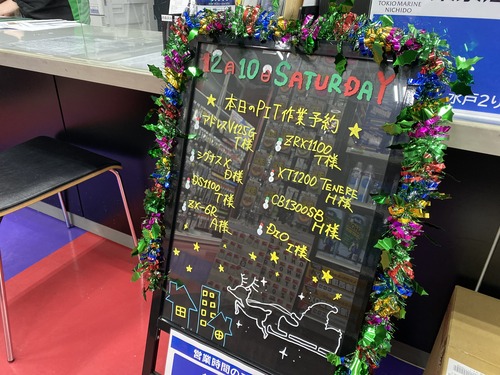 TOKIO MARINE
NICHIDO
水戸2り
12月10日 SATURDAY
★本日のPIT作業予約★
アドレスV125G
T様
シグナスX
D様
DS1100
T様
ZX-6R
A様
ZRX1100
T様
XT1200 TENERE
H様
CB1300SB
H様
I様
営業時間の